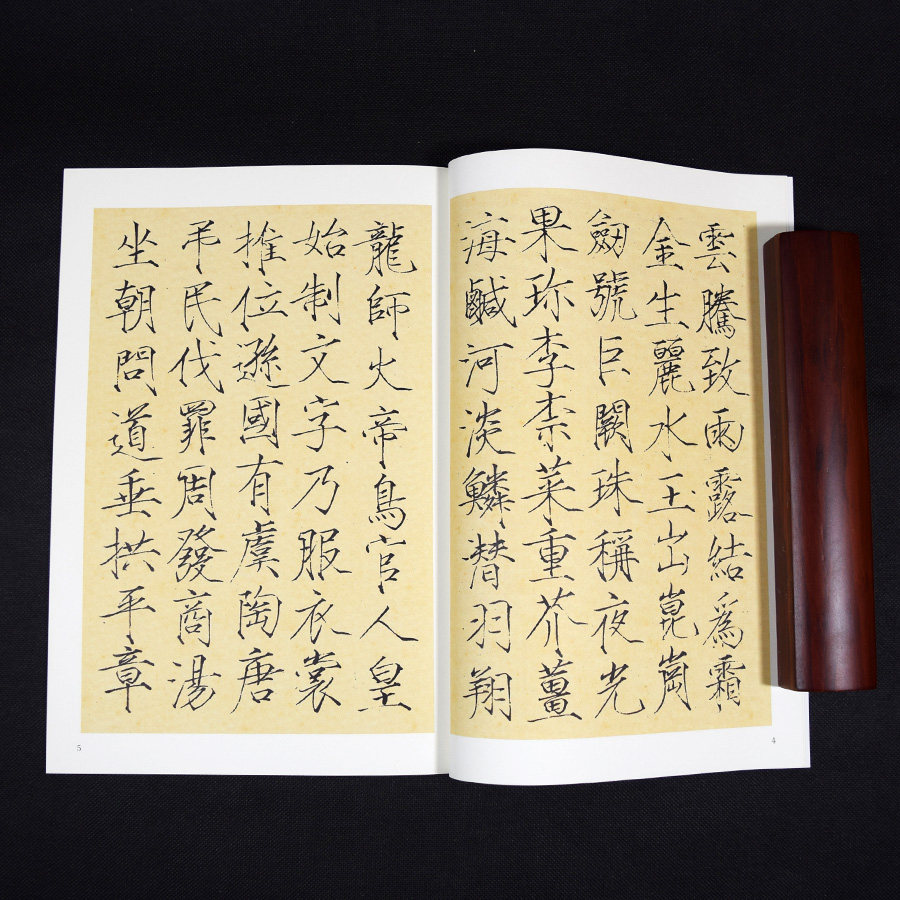 雲騰致雨露結爲霜
金生麗水玉山崑崗
劒號巨闕珠稱夜光
果珎李柰菜重芥薑
海鹹河淡鱗潛羽翔
4
龍師火帝鳥官人皇
始制文字乃服衣裳
推位遜國有虞陶唐
弔民伐罪周發商湯
坐朝問道垂拱平章
5